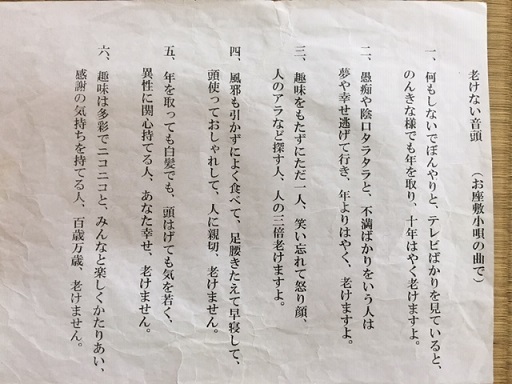 老けない音頭　　（お座敷小唄の曲で）
一、何もしないでぼんやりと、テレビばかりを見ていると、
のんきな様でも年を取り、十年はやく老けますよ。
二、愚痴や陰口タラタラと、不満ばかりをいう人は
夢や幸せ逃げて行き、年よりはやく、老けますよ。
三、趣味をもたずにただ一人、笑い忘れて怒り顔、
人のアラなど探す人、人の三倍老けますよ。
四、風邪も引かずによく食べて、足腰きたえて早寝して、
頭使っておしゃれして、人に親切、老けません。
五、年を取っても白髪でも、頭はげても気を若く、
異性に関心持てる人、あなた幸せ、老けません。
六、趣味は多彩でニコニコと、みんなと楽しくかたりあい、
感謝の気持ちを持てる人、百歳万歳、老けません。